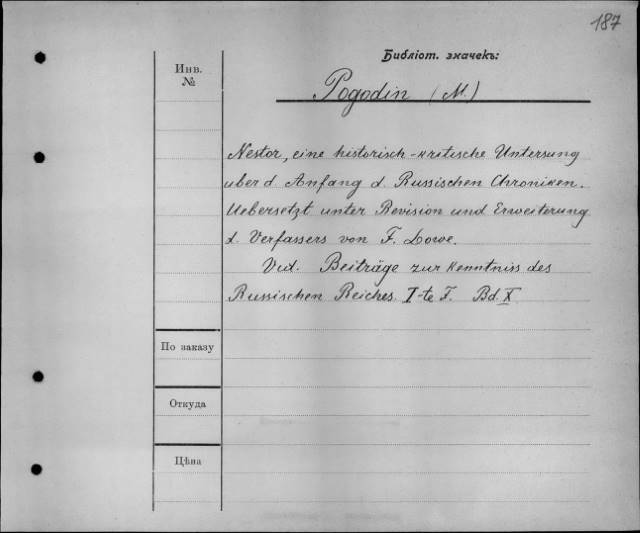 187
Библіот. значекъ:
Инв.
№
Pogodin (M.)
Nestor, eine historisch-kritische Untersung
uber d Anfang d. Russischen Chroniken.
Uebersetzt unter Revision und Erweiterung
d. Verfassers von F. Lowe.
Vid. Beiträge zur Kenntniss des
Russischen Reiches I-te F. Bd. X
По заказу
Откуда
Цѣна